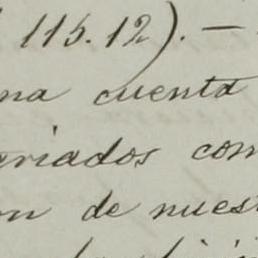 115.12). —
na cuenta
eriados com
on de nues